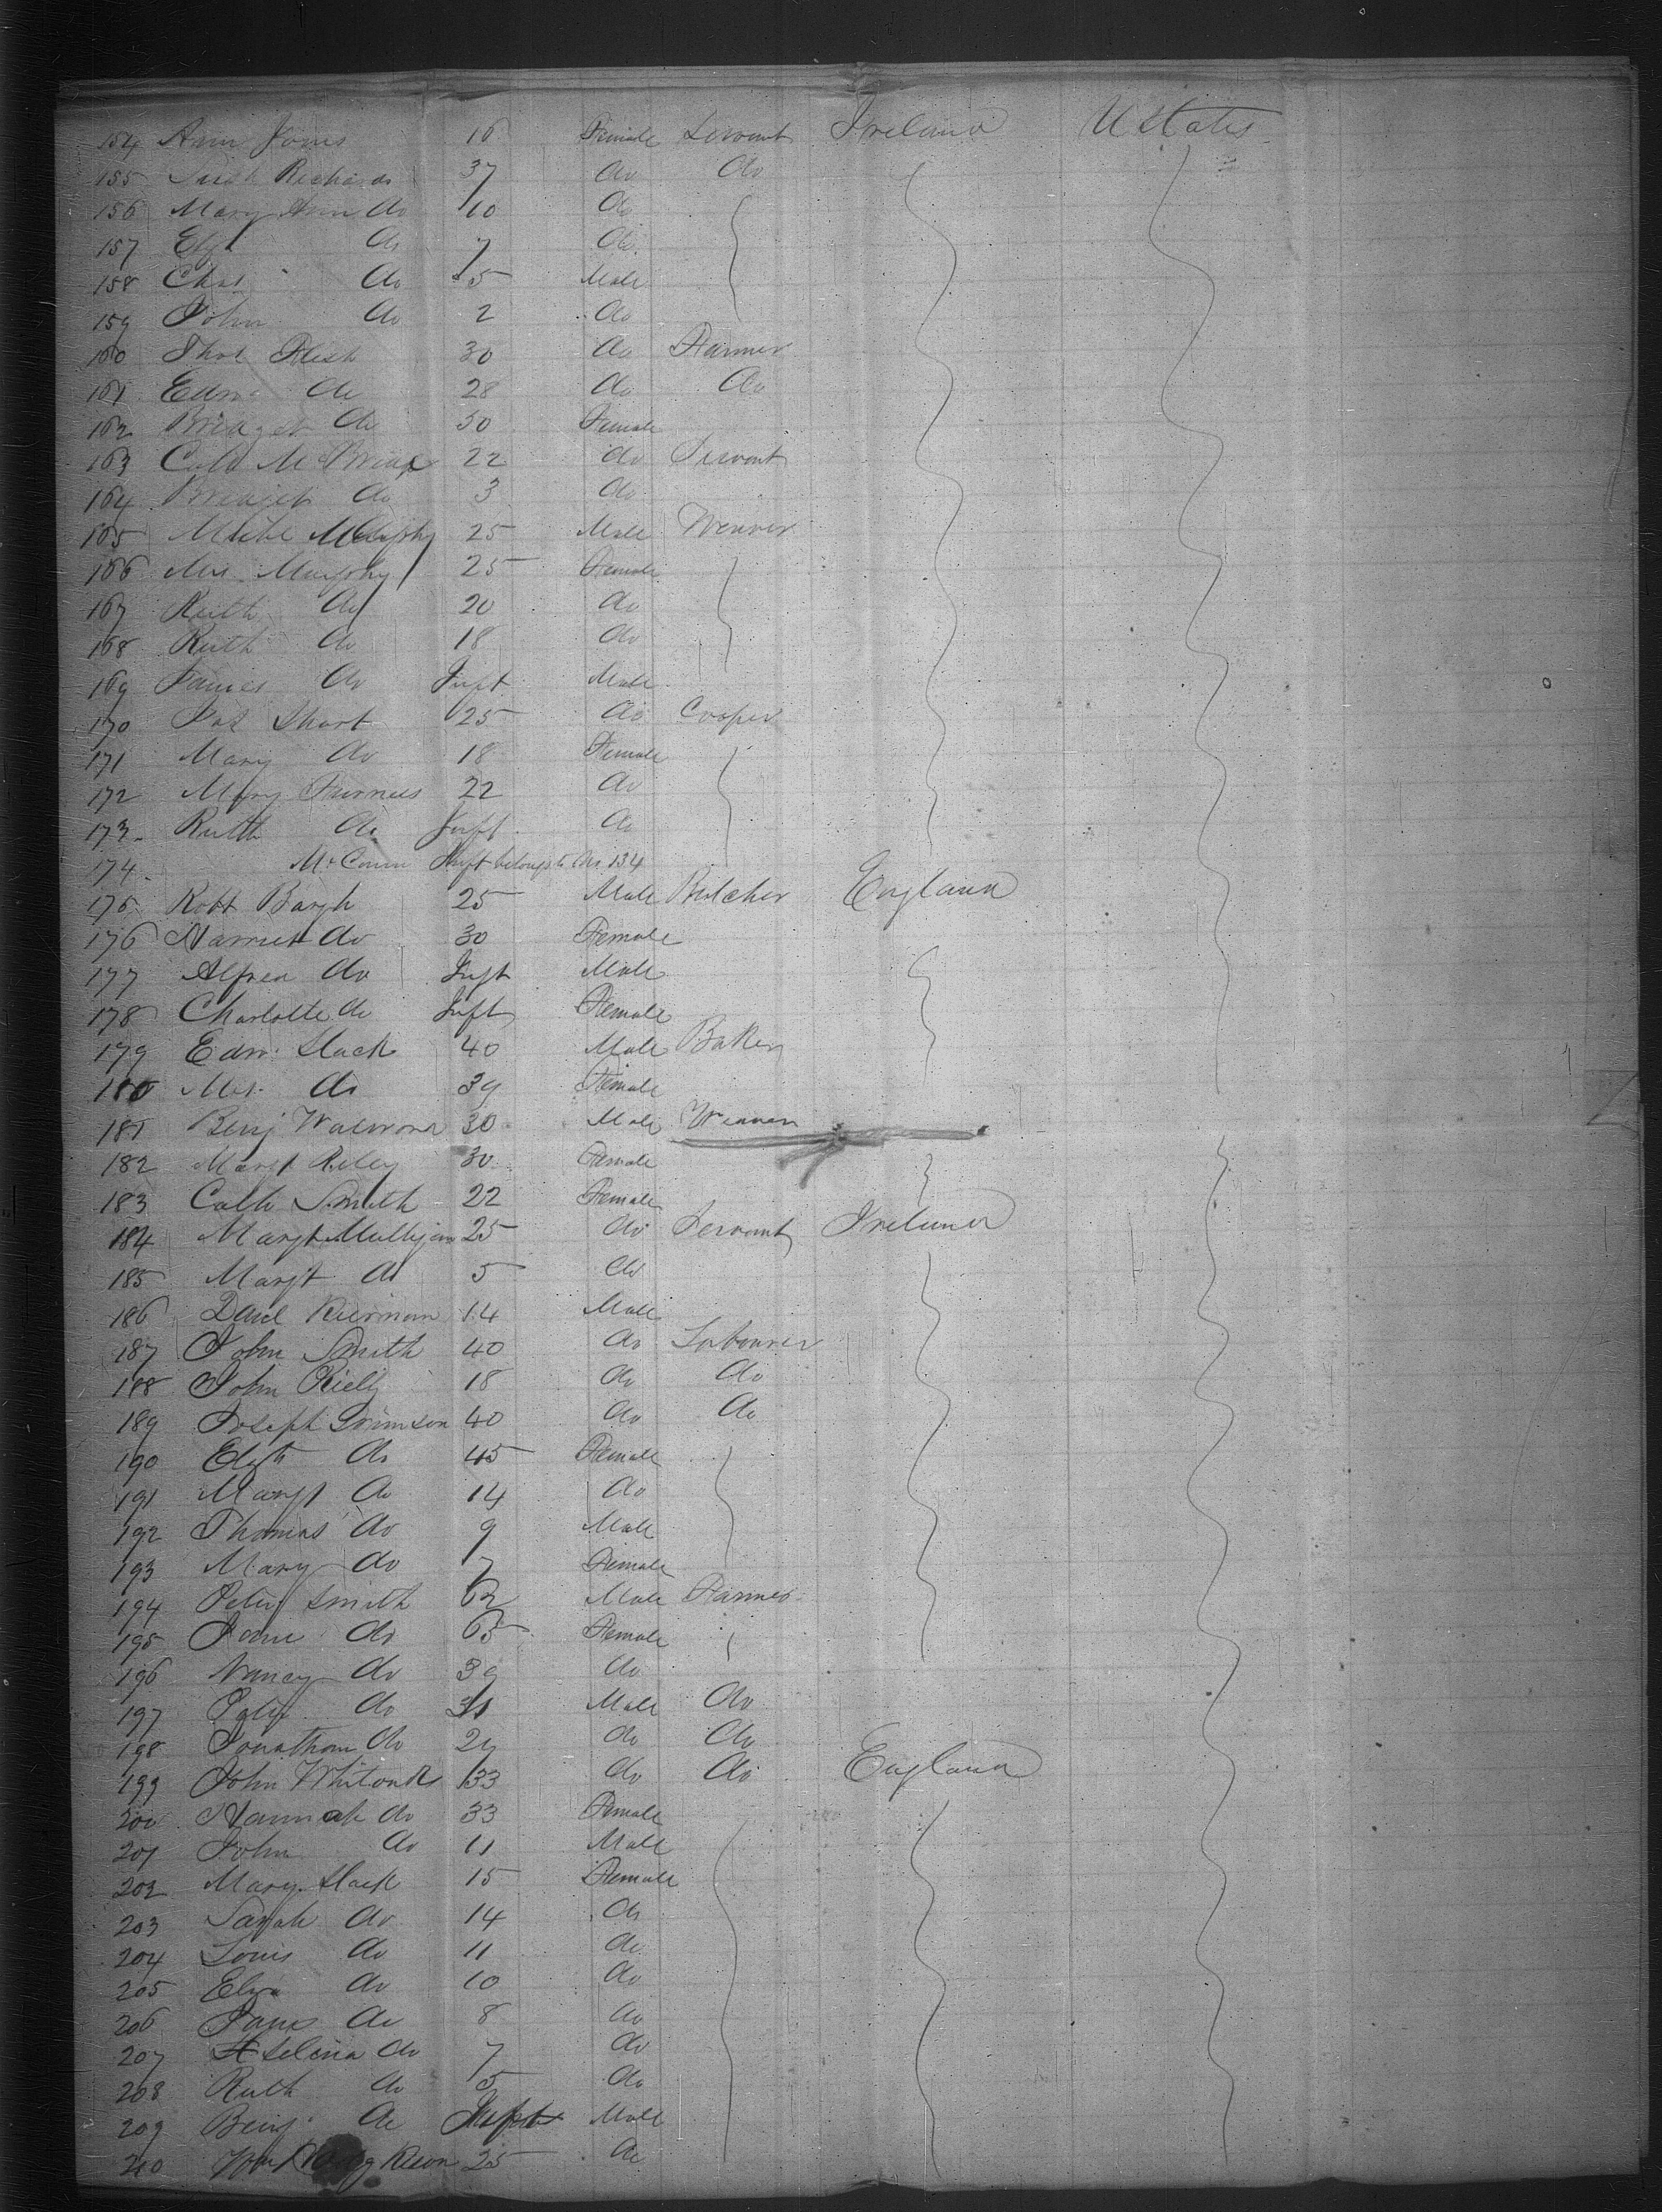 154 Ann Jones 16 Female Servant Ireland U States
155 Richards 37 do do
156 Mary Ann do 10 do
157 Eliz do 7 do
158 Chas do 5 Male
159 John do 2 do
160 Thos 30 do Farmer
161 Edm do 28 do do
162 Bridget do 30 Female
163 Cath 22 do Servant
164 Bridget do 3 do
165 25 Male Weaver
166 Mrs Murphy 25 Female
167 Ruth do 20 do
168 Ruth do 18 do
169 James do Inft Male
170 Pat Short 25 do Cooper
171 Mary do 18 Female
172 Mary Furnees 22 do
173 Ruth do Inft do
174 Inft belongs to No 134
175 Robt Bargh 25 Male Butcher England
176 Harriet do 30 Female
177 Alfred do Inft Male
178 Charlotte do Inft Female
179 Edw. Slack 40 Male Baker
180 Mrs. do 39 Female
181 Benj 30 Male Weaver
182 Margt Riley 30 Female
183 Cath Smith 22 Female
184 Margt Mulligan 25 do Servant Ireland
185 Margt do 5 do
186 Danl Kiernan 14 Male
187 John Smith 40 do Labourer
188 John Rielly 18 do do
189 Joseph Grimson 40 do do
190 Elizth do 45 Female
191 Margt do 14 do
192 Thomas do 9 Male
193 Mary do 7 Female
194 Peter Smith 62 Male Farmer
195 Jane do 65 Female
196 Nancy do 39 do
197 Peter do 31 Male do
198 Jonathan do 29 do do
199 John 33 do do England
200 Hannah do 33 Female
201 John do 11 Male
202 Mary Slack 15 Female
203 Sarah do 14 do
204 Louis do 11 do
205 Eliza do 10 do
206 Jane do 8 do
207 Selina do 7 do
208 Ruth do 5 do
209 Benj do Inft Male
210 Wm 25 do